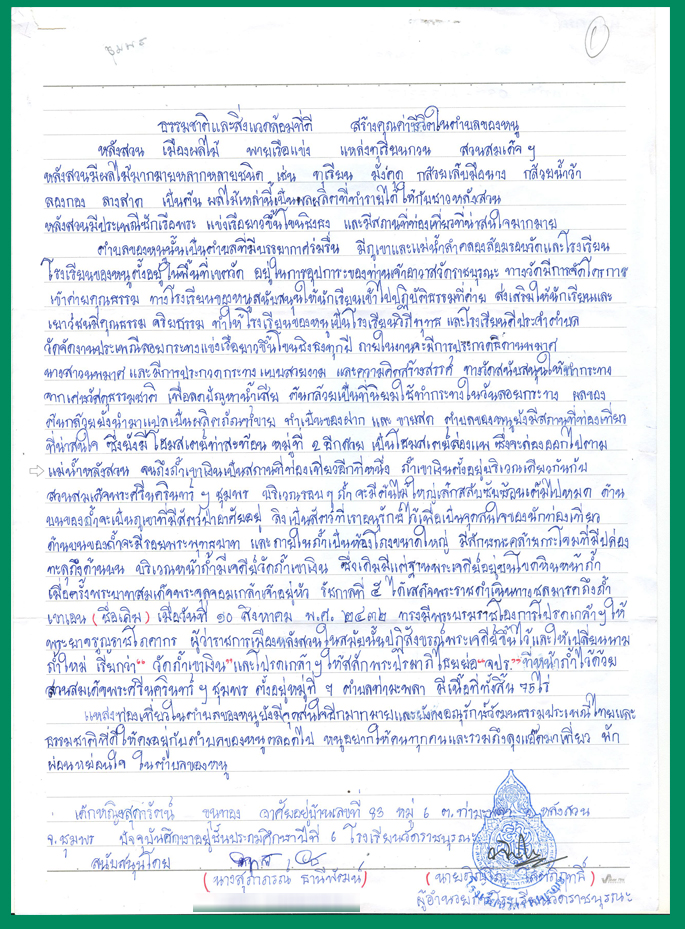 ชุมพร
1
ธรรมชาติและสิ่งแวดล้อมที่ดี สร้างคุณค่าชีวิตในตำบลของหนู
หลังสวน เมืองผลไม้ พายเรือแข่ง แหล่งทุเรียนกวน สวนสมเด็จฯ
หลังสวนมีผลไม้มากมายหลากหลายชนิด เช่น ทุเรียน มังคุด กล้วยเล็บมือนาง กล้วยน้ำว้า
ลองกอง ลางสาด เป็นต้น ผลไม้เหล่านี้เป็นผลผลิตที่ทำรายได้ให้กับชาวหลังสวน
หลังสวนมีประเพณีชักเรือพระ แข่งเรือยาวขึ้นโขนชิงธง และมีสถานที่ท่องเที่ยวที่น่าสนใจมากมาย
ตำบลของหนูนั้นเป็นตำบลที่มีบรรยากาศร่มรื่น มีภูเขาและแม่น้ำลำคลองล้อมรอบวัดและโรงเรียน
โรงเรียนของหนูตั้งอยู่ในพื้นที่เขตวัด อยู่ในการอุปการะของท่านเจ้าอาวาสวัดราชบูรณะ ทางวัดมีการจัดโครงการ
เข้าค่ายคุณธรรม ทางโรงเรียนของหนูสนับสนุนให้นักเรียนเข้าไปปฏิบัติธรรมที่ค่าย ส่งเสริมให้นักเรียนและ
เยาวชนมีคุณธรรม จริยธรรม ทำให้โรงเรียนของหนูเป็นโรงเรียนวิถีพุทธ และโรงเรียนดีประจำตำบล
วัดจัดงานประเพณีลอยกระทงแข่งเรือยาวขึ้นโขนชิงธงทุกปี ภายในงานจะมีการประกวดธิดานพมาศ
นางสาวนพมาศ และมีการประกวดกระทง แบบสวยงาม และความคิดสร้างสรรค์ ทางวัดสนับสนุนให้ทำกระทง
จากเศษวัสดุธรรมชาติ เพื่อลดปัญหาน้ำเสีย ต้นกล้วยเป็นที่นิยมใช้ทำกระทงในวันลอยกระทง ผลของ
ต้นกล้วยยังนำมาแปลเป็นผลิตภัณฑ์ขาย ทำเป็นของฝาก และ ขายสด ตำบลของหนูยังมีสถานที่ท่องเที่ยว
ที่น่าสนใจ ซึ่งยังมีโฮมสเตย์ท่าสะท้อน หมู่ที่ ๒ อีกด้วย เป็นโฮมสเตย์ล่องแพ ซึ่งจะล่องออกไปตาม
แม่น้ำหลังสวน จนถึงถ้ำเขาเงินเป็นสถานที่ท่องเที่ยวอีกที่หนึ่ง ถ้ำเขาเงินตั้งอยู่บริเวณเดียวกันกับ
สวนสมเด็จพระศรีนครินทร์ฯ ชุมพร บริเวณรอบๆ ถ้ำ จะมีต้นไม้ใหญ่เล็กสลับซับซ้อนเต็มไปหมด ด้าน
บนของถ้ำจะเป็นภูเขาที่มีสัตว์ป่าอาศัยอยู่ ลิงเป็นสัตว์ที่เราอนุรักษ์ไว้เพื่อเป็นจุดสนใจของนักท่องเที่ยว
ด้านบนของถ้ำจะมีรอยพระพุทธบาท และภายในถ้ำเป็นห้องโถงขนาดใหญ่ มีลักษณะคล้ายกระโจมที่มีปล่อง
ทะลุถึงด้านบน บริเวณหน้าถ้ำมีเจดีย์วัดถ้ำเขาเงิน ซึ่งเดิมมีแต่ฐานพระเจดีย์อยู่บนโขดหินหน้าถ้ำ
เมื่อครั้งพระบาทสมเด็จพระจุลจอมเกล้าเจ้าอยู่หัว รัชกาลที่ ๕ ได้เสด็จพระราชดำเนินทางชลมารคถึงถ้ำ
เขาเอน (ชื่อเดิม) เมื่อวันที่ ๑๐ สิงหาคม พ.ศ. ๒๔๓๒ ทรงมีพระบรมราชโองการโปรดเกล้าฯ ให้
พระยาจรูญราชโภคากร ผู้ว่าราชการเมืองหลังสวนในสมัยนั้นปฏิสังขรณ์พระเจดีย์ขึ้นไว้ และให้เปลี่ยนนาม
ถ้ำใหม่ เรียกว่า "วัดถ้ำเขาเงิน" และโปรดเกล้าฯ ให้สลักพระปรมาภิไธยย่อ "จปร." ที่หน้าถ้ำไว้ด้วย
สวนสมเด็จพระศรีนครินทร์ฯ ชุมพร ตั้งอยู่หมู่ที่ ๗ ตำบลท่ามะพลา มีเนื้อที่ทั้งสิ้น 75 ไร่
แหล่งท่องเที่ยวในตำบลของหนูยังมีจุดสนใจอีกมากมายและยังคงอนุรักษ์วัฒนธรรมประเพณีไทยและ
ธรรมชาติที่ดีให้คงอยู่กับตำบลของหนูตลอดไป หนูอยากให้คนทุกคนและรวมถึงลุงแอ๊ดมาเที่ยว พัก
ผ่อนหย่อนใจ ในตำบลของหนู
เด็กหญิงสุดารัตน์ ขุนทอง อาศัยอยู่บ้านเลขที่ 83 หมู่ 6 ต.ท่ามะพลา อ.หลังสวน
จ.ชุมพร ปัจจุบันศึกษาอยู่ชั้นประถมศึกษาปีที่ 6 โรงเรียนวัดราชบูรณะ
สนับสนุนโดย
(นางสุดาภรณ์ ธานีพัฒน์)
ผู้อำนวยการโรงเรียนวัดราชบูรณะ